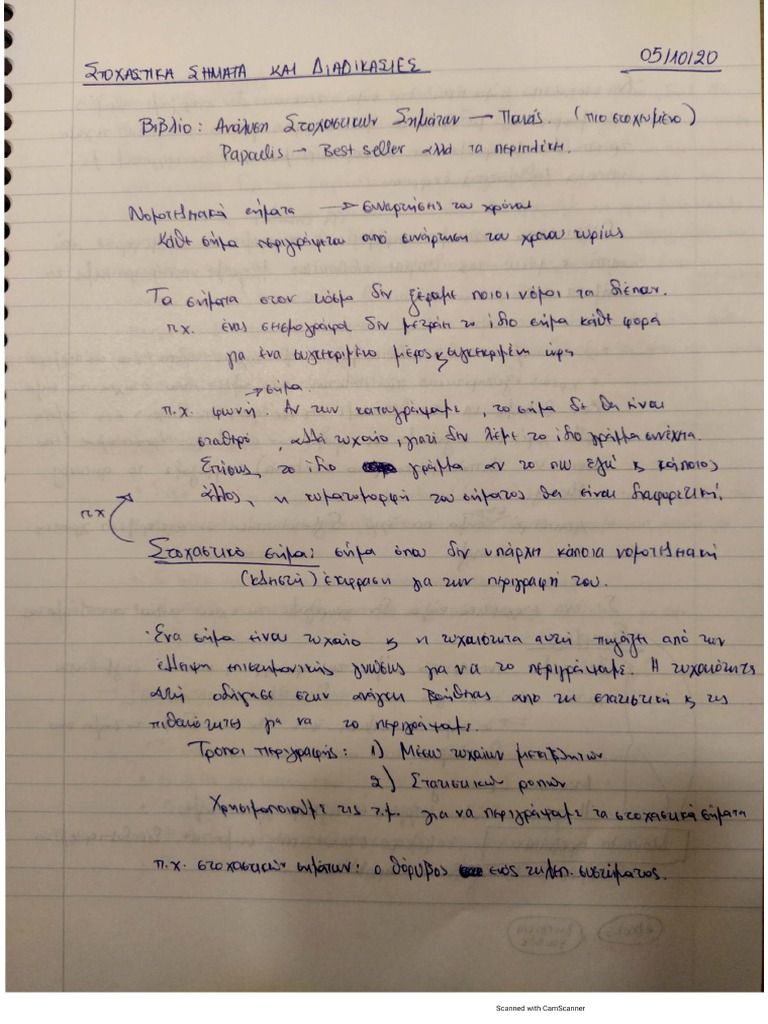 ΣΤΟΧΑΣΤΙΚΑ ΣΗΜΑΤΑ ΚΑΙ ΔΙΑΔΙΚΑΣΙΕΣ 05/10/20
Βιβλίο: Ανάλυση Στοχαστικών Σημάτων → Πανάς. (πιο στοχευμένο)
Papoulis → Best seller αλλά τα περιπλέκει.
Νομοτελειακά σήματα → συναρτήσεις του χρόνου
Κάθε σήμα περιγράφεται από συνάρτηση του χρόνου κυρίως
Τα σήματα στον κόσμο δεν ξέραμε ποιοι νόμοι τα διέπουν.
π.χ. ένας σεισμογράφος δεν μετράει το ίδιο σήμα κάθε φορά
για ένα συγκεκριμένο μέρος & συγκεκριμένη ώρα
→ σήμα.
π.χ. φωνή. Αν την καταγράψουμε, το σήμα δε θα είναι
σταθερό, αλλά τυχαίο, γιατί δεν λέμε το ίδιο γράμμα συνέχεια.
Επίσης, το ίδιο γράμμα αν το πω εγώ & κάποιος
άλλος, η κυματομορφή του σήματος θα είναι διαφορετική.
πχ
Στοχαστικό σήμα: σήμα όπου δεν υπάρχει κάποια νομοτελειακή
(κλειστή) έκφραση για την περιγραφή του.
· Ένα σήμα είναι τυχαίο & η τυχαιότητα αυτή πηγάζει από την
έλλειψη επιστημονικής γνώσης για να το περιγράψουμε. Η τυχαιότητα
αυτή οδήγησε στην ανάγκη βοήθειας από τη στατιστική & τις
πιθανότητες για να το περιγράψουμε.
Τρόποι περιγραφής: 1) Μέσω τυχαίων μεταβλητών
2) Στατιστικών ροπών
Χρησιμοποιούμε τις τ.μ. για να περιγράψουμε τα στοχαστικά σήματα
π.χ. στοχαστικών σημάτων: ο θόρυβος ενός τηλεπ. συστήματος.
Scanned with CamScanner